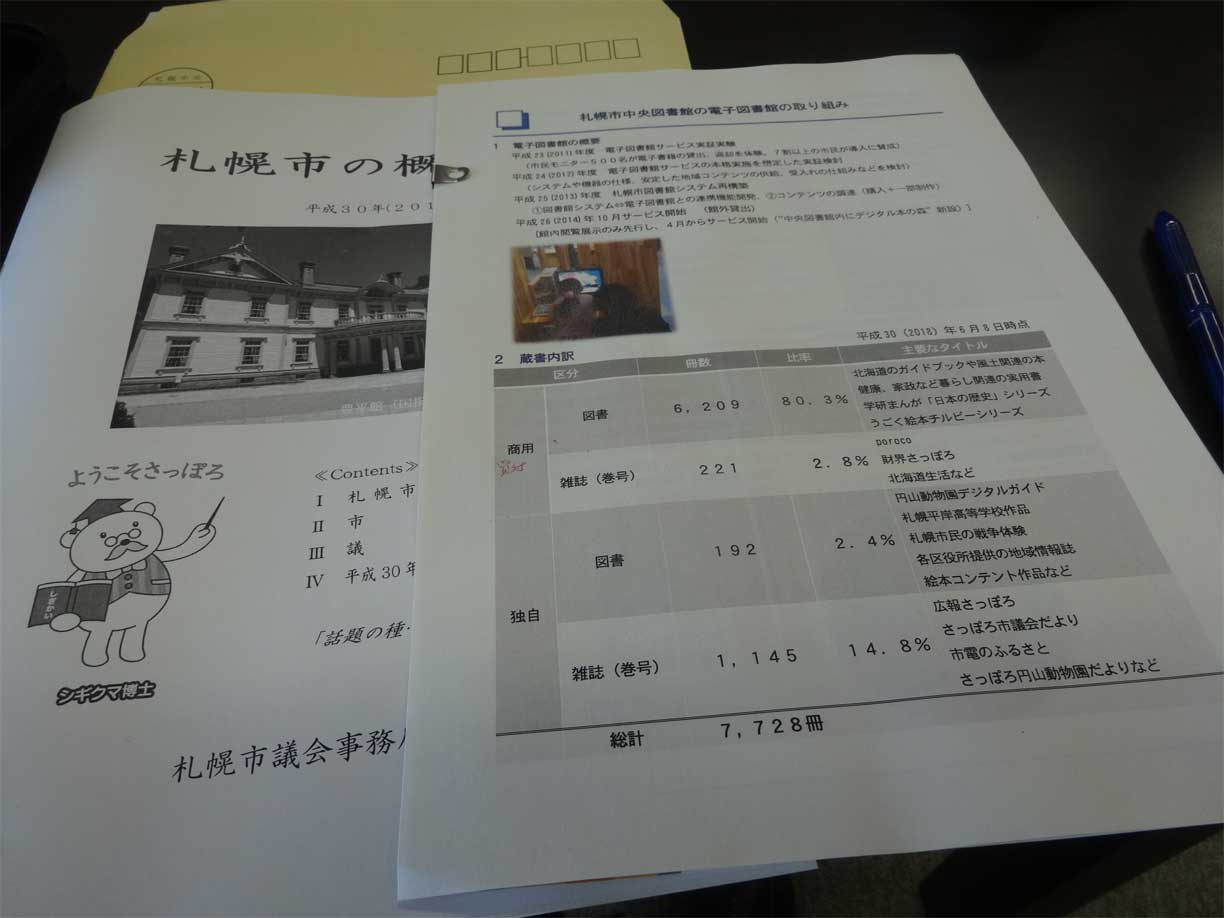 札幌市の概
平成30年(201
豊平館
ようこそさっぽろ
しぎかい
シギクマ博士
≪Contents≫
Ⅰ 札幌市
Ⅱ 市
Ⅲ 議
Ⅳ 平成30年
「話題の種・
札幌市議会事務
札幌市中央図書館の電子図書館の取り組み
1 電子図書館の概要
平成23(2011)年度 電子図書館サービス実証実験
(市民モニター500名が電子書籍の貸出、返却を体験。7割以上の市民が導入に賛成)
平成24(2012)年度 電子図書館サービスの本格実施を想定した実証検討
(システムや機器の仕様、安定した地域コンテンツの供給、受入れの仕組みなどを検討)
平成25(2013)年度 札幌市図書館システム再構築
①図書館システム⇔電子図書館との連携機能開発、②コンテンツの調達(購入+一部制作)
平成26(2014)年10月サービス開始 (館外貸出)
[館内閲覧展示のみ先行し、4月からサービス開始("中央図書館内にデジタル本の森"新設)]
平成30(2018)年6月8日時点
2 蔵書内訳
区分 冊数 比率 主要なタイトル
商用 図書 6,209 80.3% 北海道のガイドブックや風土関連の本
健康、家政など暮らし関連の実用書
学研まんが「日本の歴史」シリーズ
うごく絵本チルビーシリーズ
雑誌(巻号) 221 2.8% poroco
財界さっぽろ
北海道生活など
独自 図書 192 2.4% 円山動物園デジタルガイド
札幌平岸高等学校作品
札幌市民の戦争体験
各区役所提供の地域情報誌
絵本コンテント作品など
雑誌(巻号) 1,145 14.8% 広報さっぽろ
さっぽろ市議会だより
市電のふるさと
さっぽろ円山動物園だよりなど
総計 7,728冊